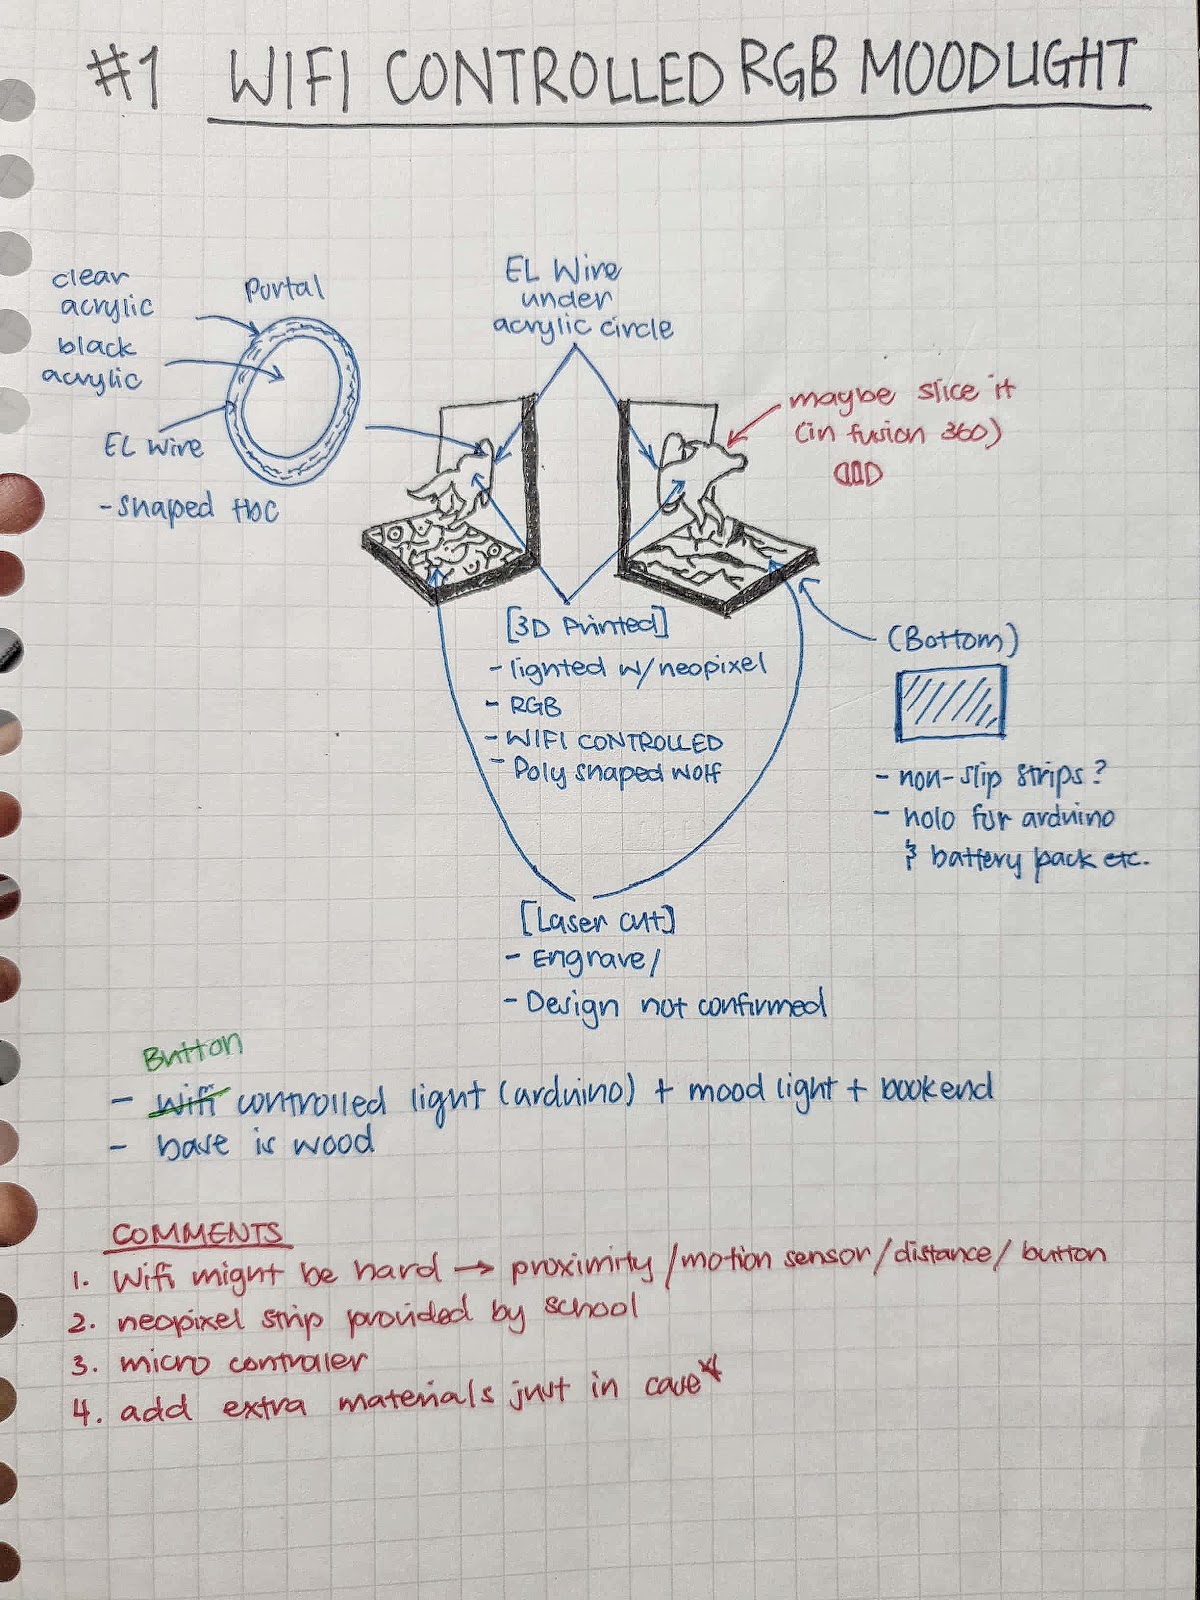 #1 WIFI CONTROLLED RGB MOODLIGHT
clear
acrylic
black
acrylic
Portal
EL wire
- shaped tbc
EL Wire
under
acrylic circle
maybe slice it
(in fusion 360)
[3D Printed]
- lighted w/neopixel
- RGB
- WIFI CONTROLLED
- Poly shaped wolf
(Bottom)
- non-slip strips?
- holo for arduino
& battery pack etc.
[Laser cut]
- Engrave/
- Design not confirmed
Button
- wifi controlled light (arduino) + mood light + bookend
- base is wood
COMMENTS
1. Wifi might be hard → proximity/motion sensor/distance/button
2. neopixel strip provided by school
3. micro controler
4. add extra materials just in case*